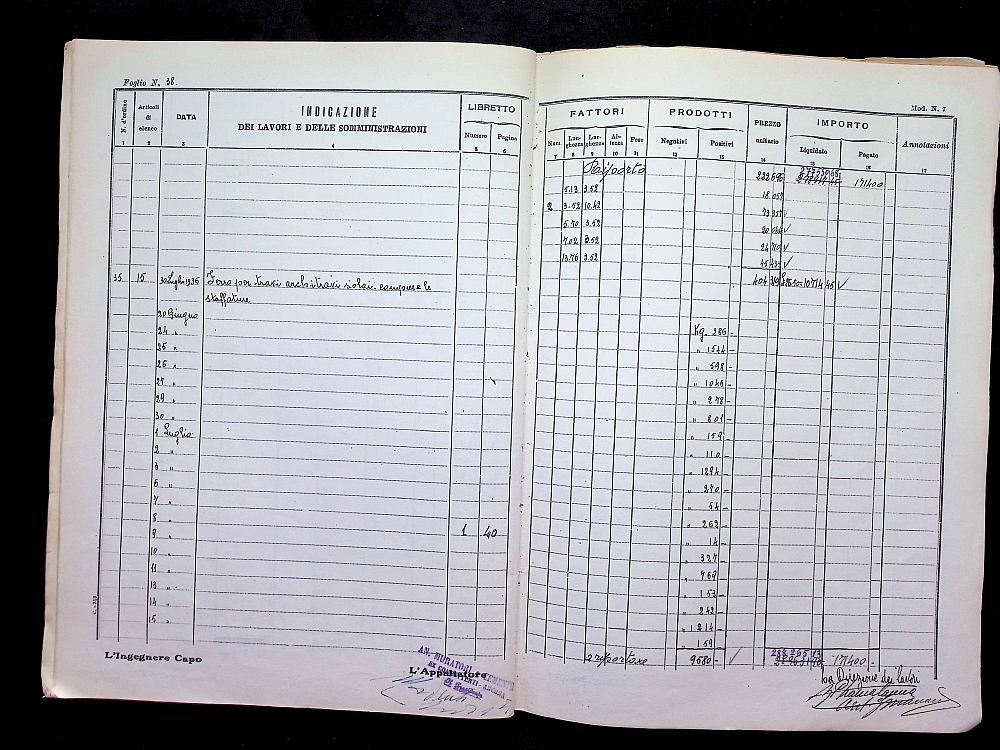 Foglio N. 38.
Mod. N. 7
N. d'ordine
Articoli di elenco
DATA
INDICAZIONE
DEI LAVORI E DELLE SOMMINISTRAZIONI
LIBRETTO
Numero
Pagina
FATTORI
Num.
Lunghezza
Larghezza
Altezza
Peso
PRODOTTI
Negativi
Positivi
PREZZO unitario
IMPORTO
Liquidato
Pagato
Annotazioni
1 2 3 4 5 6 7 8 9 10 11 12 13 14 15 16 17
Riporto 232 696 171400
5.13 3.52 18 057
2 3.52 10.42 73 357
5.70 3.52 20 064
7.02 3.52 24 710
13.76 3.52 45 435
35 15 30 Luglio 1935 Ferro per travi architravi solai compreso le 404 319 10714 45
staffature
20 Giugno Kg. 286 -
24 " " 1544 -
25 " " 598 -
26 " " 1046 -
27 " " 278 -
29 " " 801 -
30 " " 159 -
1 Luglio " 110 -
2 " " 1294 -
3 " " 270 -
6 " " 54 -
7 " " 262 -
8 " " 14 -
9 " 1 40 " 327 -
10 " " 769 -
11 " " 153 -
13 " " 242 -
14 " " 1214 -
15 " " 159 -
a riportare 9580 - 171400 -
L'Ingegnere Capo
L'Appaltatore
AN. MURATORI
La Direzione dei lavori